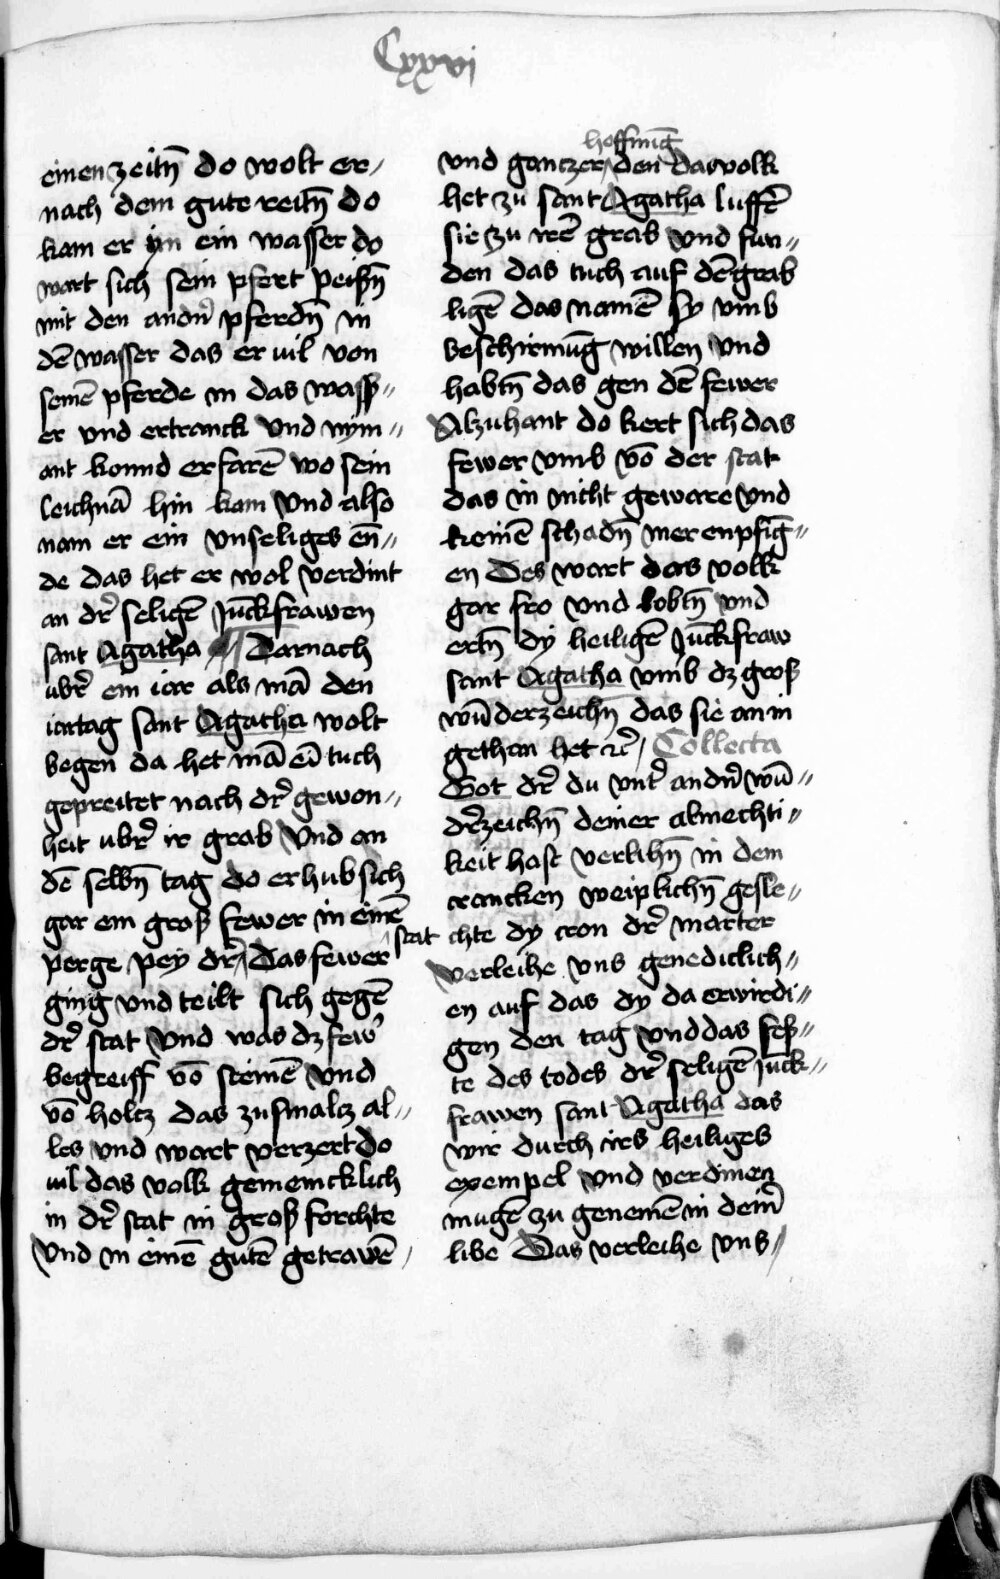 Cxxvi
einen zeitn̄ do wolt er /
nach dem gute reitn̄ do
kam er yn ein wasser do
wart sich sein pfert peisn̄
mit den andn̄ pferdn̄ in
dē wasser das er uil von
seinē pferde in das wass //
er vnd ertranck Vnd nym //
ant konnd erfarē wo sein
leichnā hin kam Vnd also
nam er ein vnseliges en̄ //
de das het er wol verdint
an dr̄ seligē Jūckfrawen
sant Agatha ¶ Darnach
ubr̄ ein iar als mā den
iartag sant Agatha wolt
begen da het mā eī tuch
gepreitet nach dr̄ gewon //
heit ubr̄ ir grab Vnd an
dē selbn̄ tag do erhub sich
gar ein groß fewer in einē
perge pey dr̄ / stat Das fewer
ging vnd teilt sich gegē
dr̄ stat Vnd was dz few̄
begreiff vō steinē Vnd
vō holtz das zusmaltz al //
les vnd wart verzert do
uil das volk gemeincklich
in dr̄ stat in groß forchte
Vnd in einē gutē getrawē /
hoffnūg
vnd gantzer / den das volk
het zu sant Agatha luffē
sie zu irē grab Vnd fun //
den das tuch auf dē grab
ligē das namē sy vmb
beschirmūg willen Vnd
habtn̄ das gen dē fewer
Alzuhant do kert sich das
fewer vmb vō der stat
das in nicht geware Vnd
keinē schadn̄ mer enpfīg //
en Des wart das volk
gar fro vnd lobtn̄ vnd
ertn̄ dy heiligē Jūckfraw
sant Agatha vmb dz groß
wūderzeichn̄ das sie an in
gethan het ꝛc̄ / Collecta
Got dr̄ du vntr̄ andn̄ wū //
dr̄zeichn̄ deiner almechti //
keit hast verlihn̄ in dem
crancken weiplichn̄ gesle //
chte dy cron dr̄ marter
Verleihe vns genediclich //
en auf das dy da erwirdi //
gen den tag vnd das feß //
te des todes dr̄ seligē Jūck //
frawen sant Agatha das
wir durch irs heiliges
exempel Vnd verdinen
mugē zu genemē in dein̄
libe Das verleihe vns /